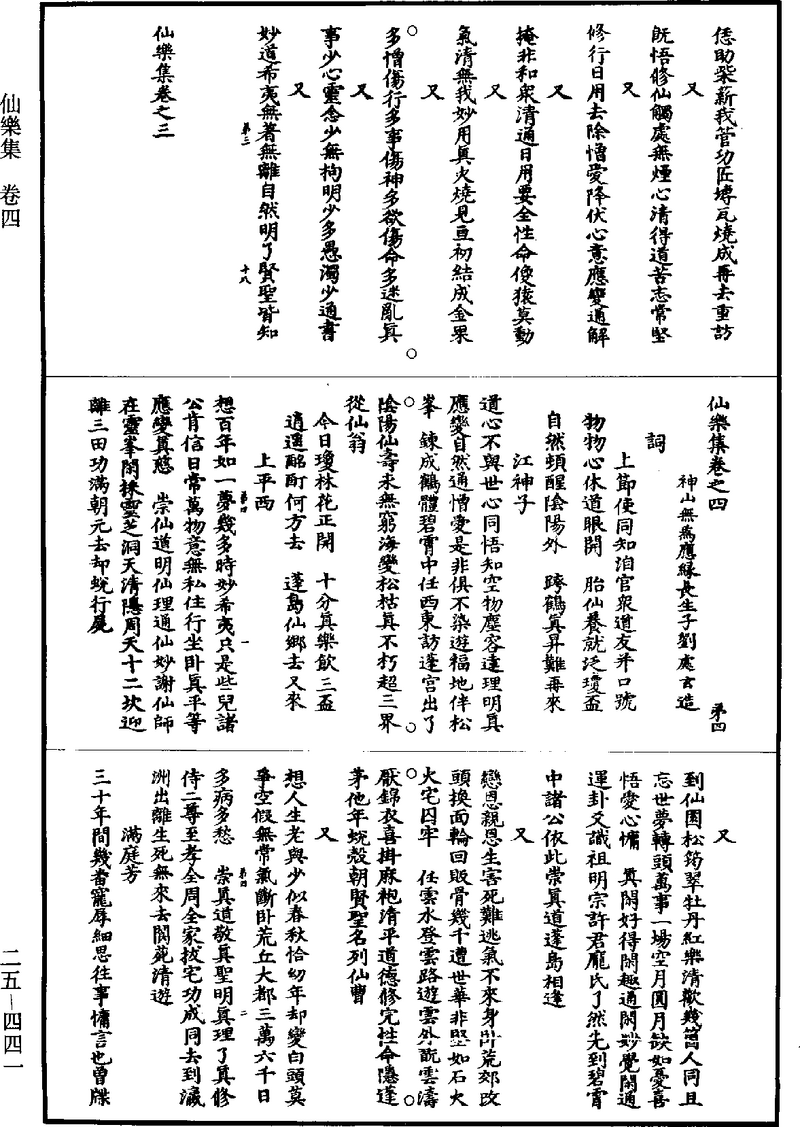 恁助柴薪我管功匠塼瓦燒成再去重訪
又
既悟修仙觸處無煙心清得道苦志常堅
又
修行日用去除憎愛降伏心意應變通解
又
掩非和衆清通日用要全性命使猿莫動
又
氣清無我妙用真火燒見亘初結成金果
又
多憎傷行多事傷神多欲傷命多迷亂真
又
事少心靈念少無拘明少多愚濁少通書
又
妙道希夷無著無離自然明了賢聖皆知
第三
十八
仙樂集卷之三
仙樂集卷之四
第四
神山無爲應緣長生子劉處玄造
詞
上節使同知洎官衆道友并口號
物物心休道眼開 胎仙養就泛瓊盃
自然頓醒陰陽外 跨鶴真昇難再來
江神子
道心不與世心同悟知空物塵容達理明真
應變自然通憎愛是非俱不染遊福地伴松
峯 鍊成鶴體碧霄中任西東訪蓬宮出了
陰陽仙壽永無窮海變松枯真不朽超三界
從仙翁
今日瓊林花正開 十分真樂飲三盃
逍遥酩酊何方去 蓬島仙鄉去又來
上平西
想百年如一夢幾多時妙希夷只是些兒諸
第四
一
公肯信日常萬物意無私住行坐卧真平等
應變真慈 崇仙道明仙理通仙妙謝仙師
在靈峯閑採靈芝洞天清隱周天十二坎迎
離三田功滿朝元去却蜕行屍
又
到仙園松筠翠牡丹紅樂清歡幾箇人同且
忘世夢轉頭萬事一場空月圓月缺如憂喜
悟愛心慵 真閑好得閑趣通閑妙覺閑通
運卦爻識祖明宗許君龐氏了然先到碧霄
中諸公依此崇真道蓬島相逢
又
戀恩親恩生害死難逃氣不來身卧荒郊改
頭換面輪回販骨幾千遭世華非堅如石火
火宅囚牢 任雲水登雲路遊雲外翫雲濤
厭錦衣喜掛麻袍清平道德修完性命隱蓬
茅他年蜕殼朝賢聖名列仙曹
又
想人生老與少似春秋恰幼年却變白頭莫
爭空假無常氣斷卧荒丘大都三萬六千日
多病多愁 崇真道敬真聖明真理了真修
第四
二
侍二尊至孝全周全家拔宅功成同去到瀛
洲出離生死無來去閬苑清遊
滿庭芳
三十年間幾畨寵辱細思往事慵言也曾牒
仙樂集 卷四
二五–四四一